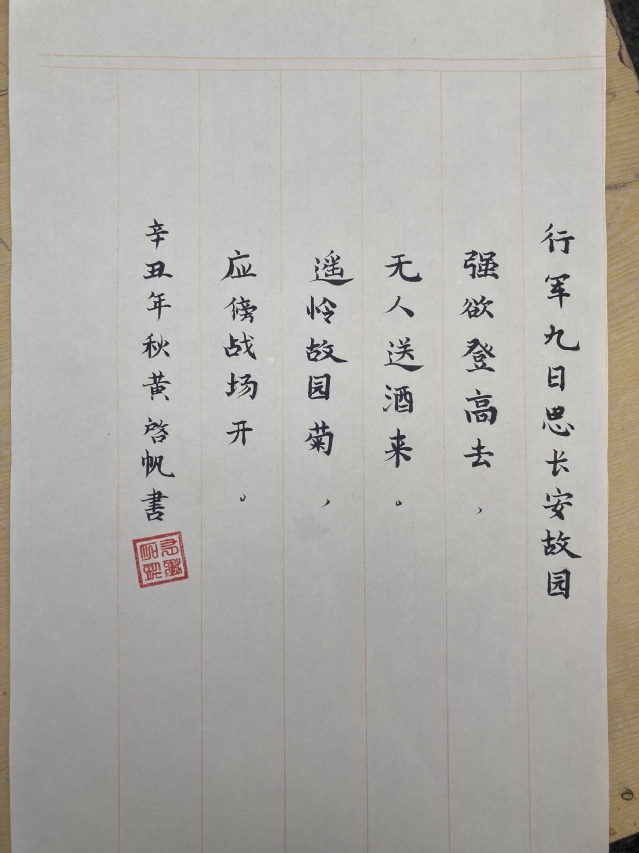 行军九日思长安故园
强欲登高去，
无人送酒来。
遥怜故园菊，
应傍战场开。
辛丑年秋黄启帆书